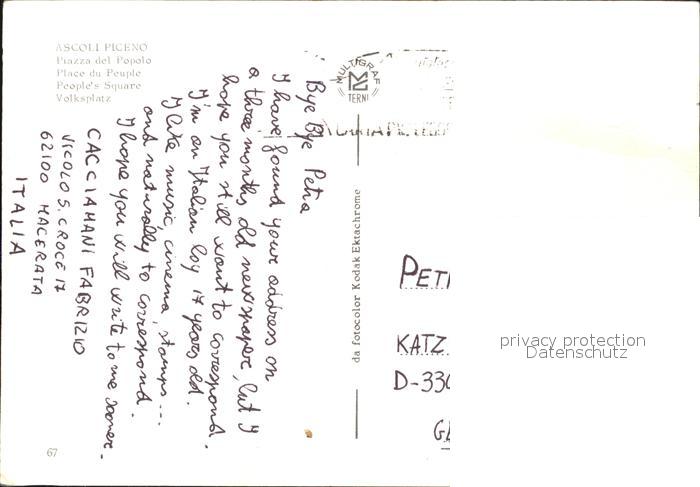 ASCOLI PICENO
Piazza del Popolo
Place du Peuple
People's Square
Volksplatz
MULTIGRAF
TERNI
Bye Bye Petra
I have found your address on
a three months old newspaper, but I
hope you still want to correspond.
I'm an Italian boy 17 years old.
I like music, cinema, stamps...
and naturally to correspond.
I hope you will write to me sooner.
CACCIAMANI FABRIZIO
VICOLO S. CROCE 17
62100 MACERATA
ITALIA
da fotocolor Kodak Ektachrome
PET
KATZ
D-330
privacy protection
Datenschutz
67